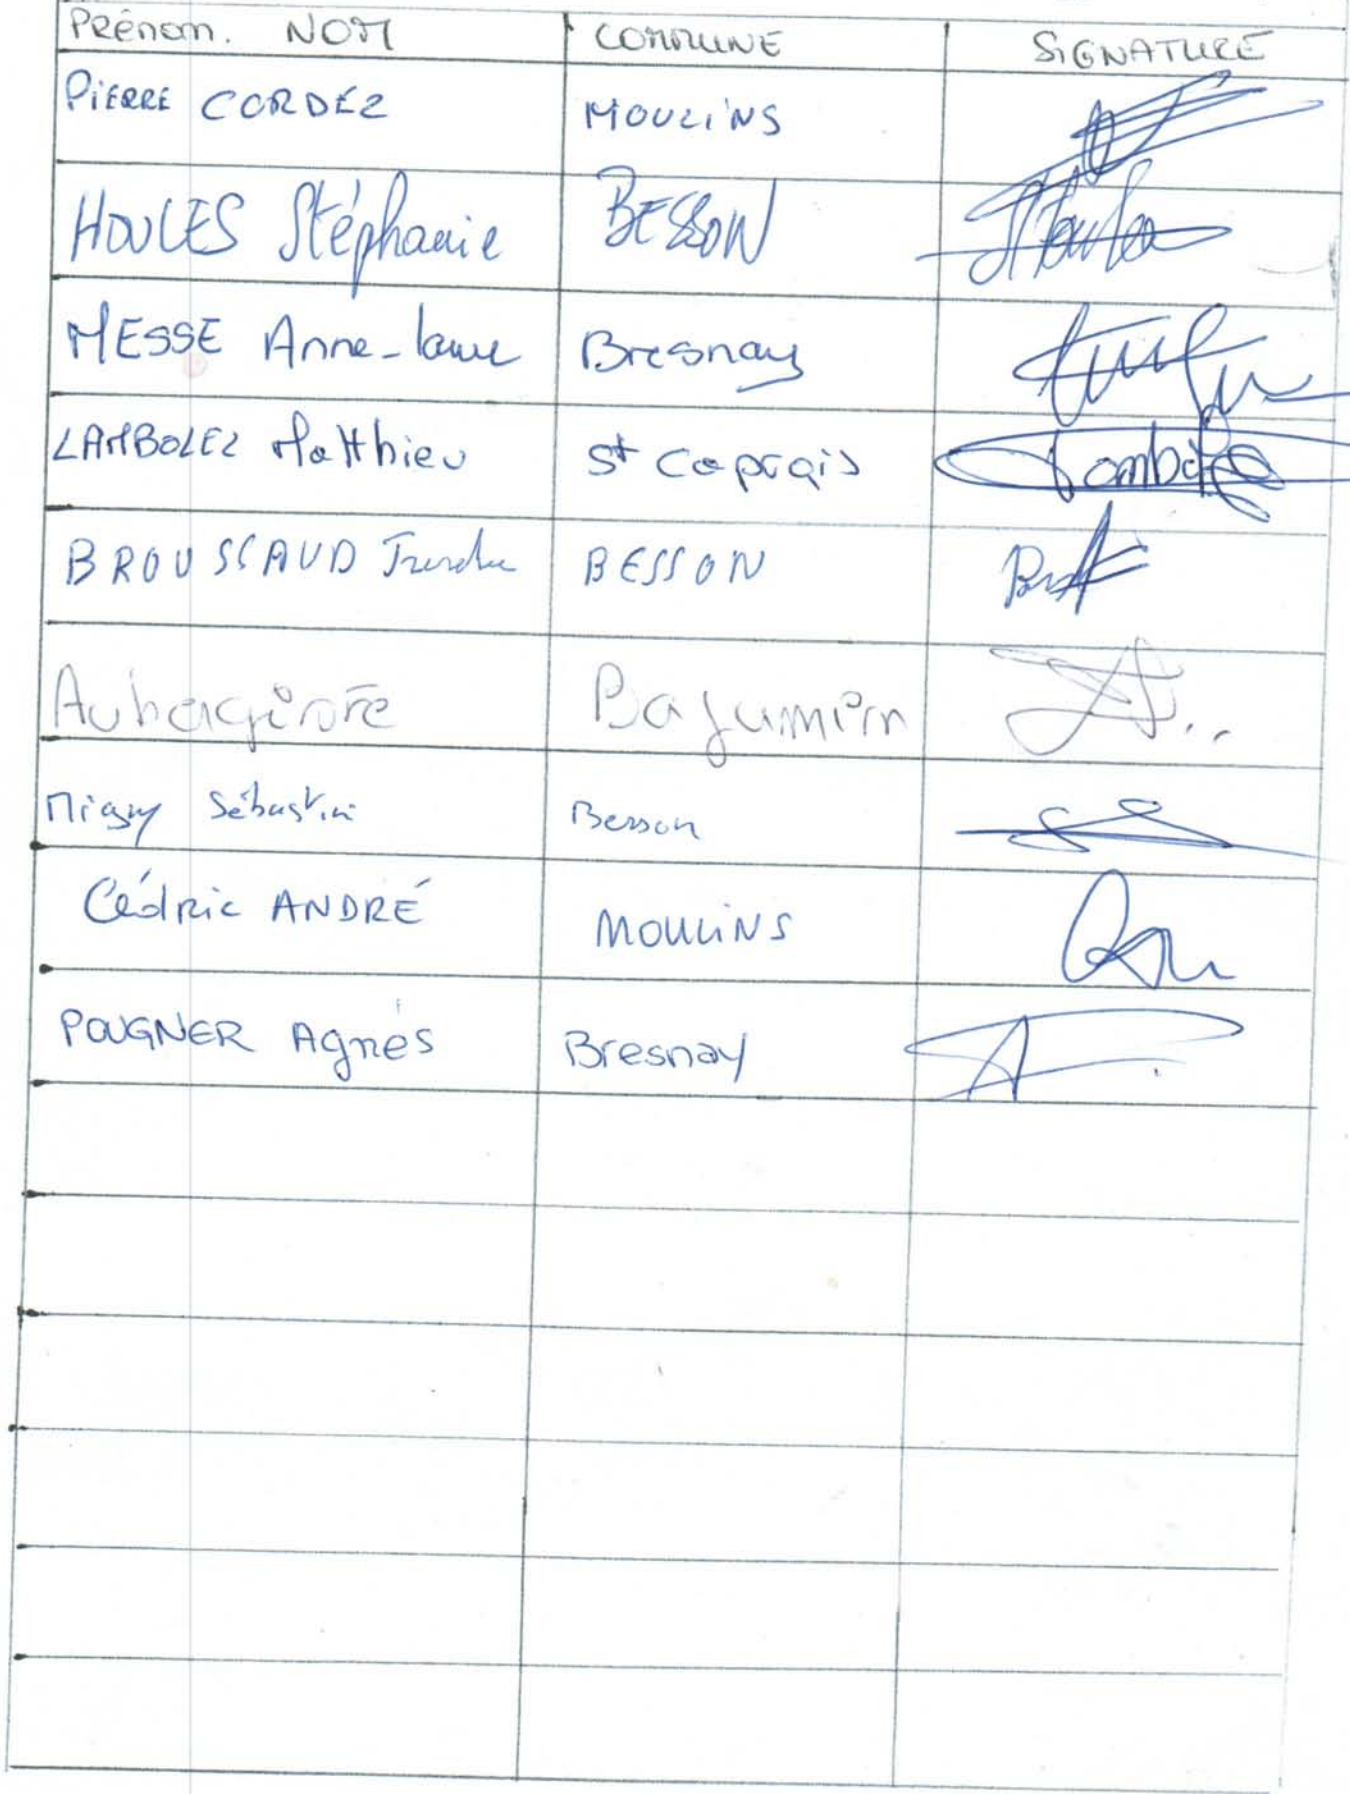 Prénom. NOM COMMUNE SIGNATURE
PIERRE CORDEZ MOULINS
HOULES Stéphanie BESSON
MESSE Anne-Laure Bresnay
LAMBOLEZ Matthieu St Caprais
BROUSSAUD BESSON
Sébastien Besson
Cédric ANDRÉ MOULINS
POUGNER Agnès Bresnay